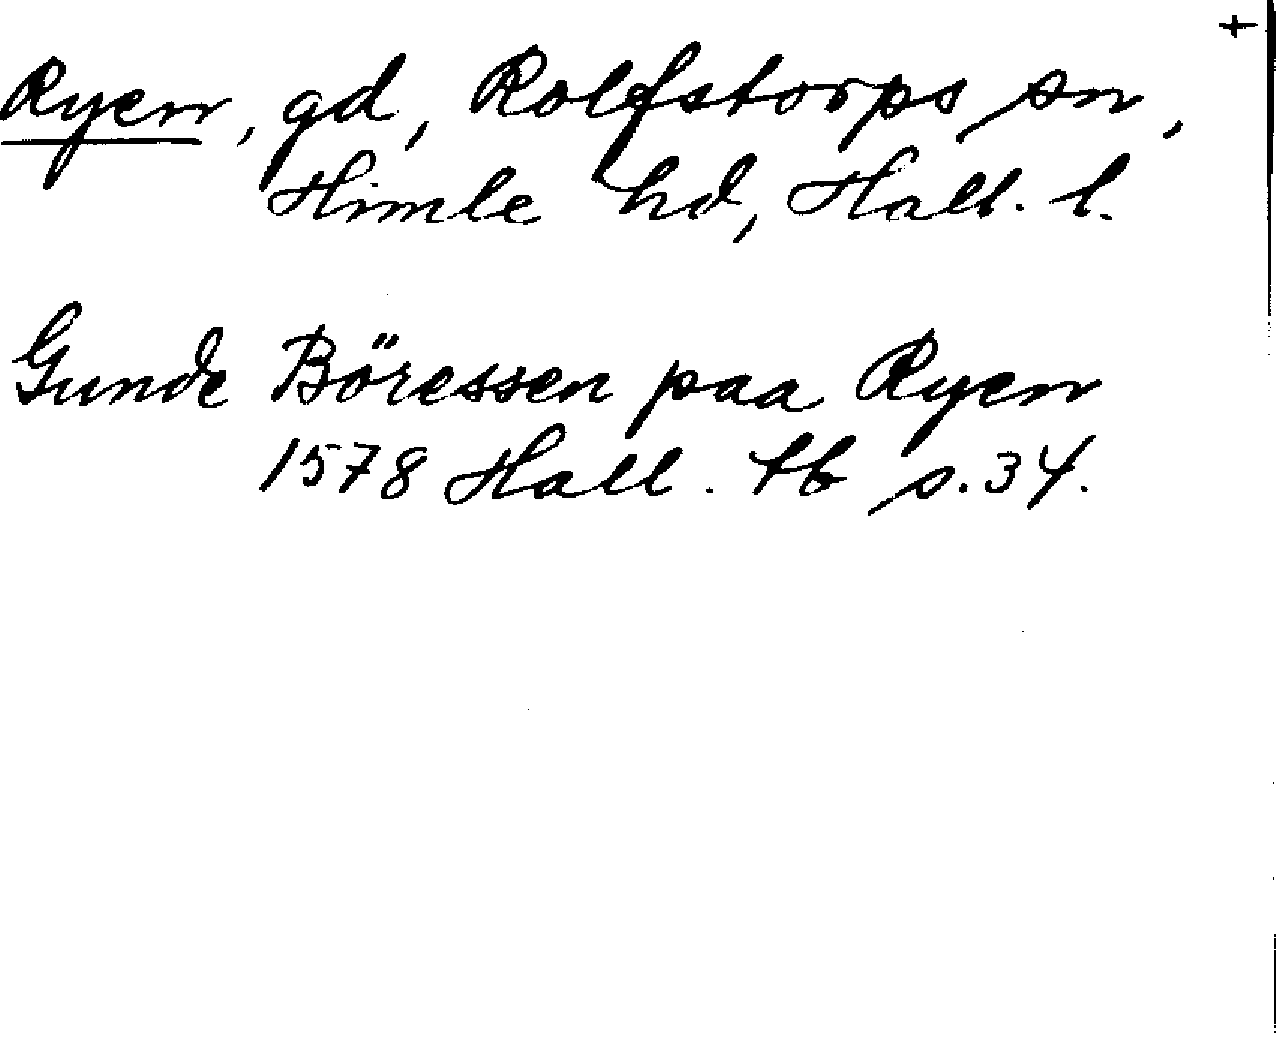 +
Ryen, gd, Rolfstorps sn,
Himle hd, Hall. l.
Gunde Böressen paa Ryen
1578 Hall. tb s. 34.